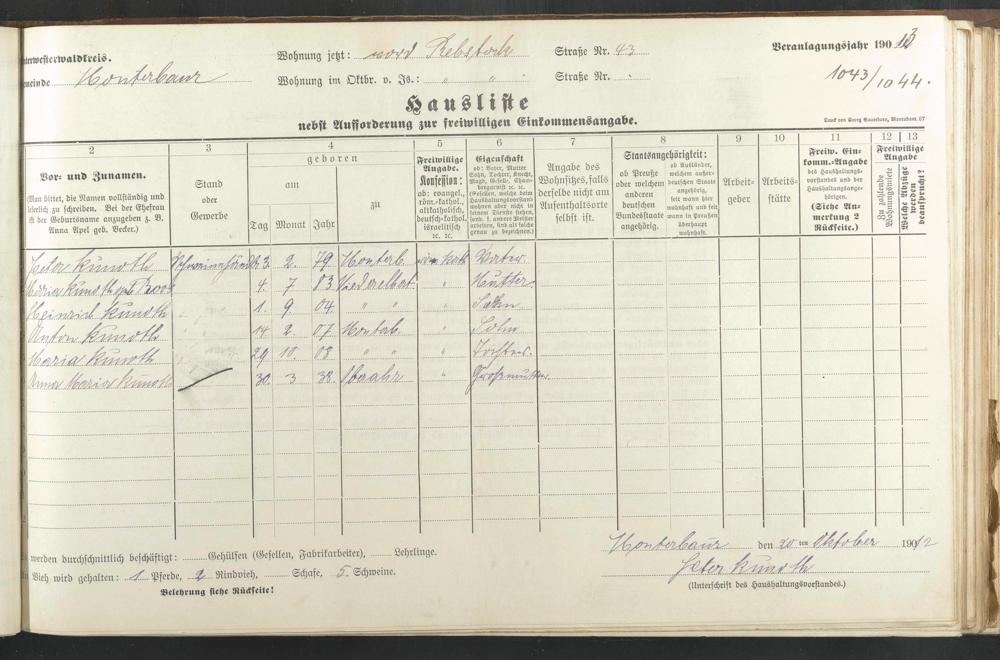 nterwesterwaldkreis.
Wohnung jetzt: nord Rebstock Straße Nr. 43
Veranlagungsjahr 190 13
meinde Montabaur
Wohnung im Oktbr. v. Js.: " " Straße Nr.
1043/1044.
Hausliste
nebst Aufforderung zur freiwilligen Einkommensangabe.
Druck von Georg Sauerborn, Montabaur. 07
2 3 4 5 6 7 8 9 10 11 12 13
Vor- und Zunamen.
(Man bittet, die Namen vollständig und
leserlich zu schreiben. Bei der Ehefrau
ist der Geburtsname anzugeben z. B.
Anna Apel geb. Becker.)
Stand
oder
Gewerbe
geboren
am
Tag Monat Jahr
zu
Freiwillige
Angabe.
Konfession:
ob: evangel.,
röm.-kathol.,
altkatholisch,
deutsch-kathol.
israelitisch
ꝛc. ꝛc.
Eigenschaft
ob: Vater, Mutter
Sohn, Tochter, Knecht,
Magd, Geselle, Cham-
bergarnist ꝛc. ꝛc.
Angabe des
Wohnsitzes, falls
derselbe nicht am
Aufenthaltsorte
selbst ist.
Staatsangehörigkeit:
ob Preuße
oder welchem
anderen
deutschen
Bundesstaate
angehörig.
ob Ausländer,
welchem außer-
deutschen Staate
angehörig,
seit wann hier
wohnhaft und seit
wann in Preußen
überhaupt
wohnhaft.
Arbeit-
geber
Arbeits-
stätte
Freiw. Ein-
komm.-Angabe
des Haushaltungs-
vorstandes und der
Haushaltungsange-
hörigen.
(Siehe An-
merkung 2
Rückseite.)
Freiwillige
Angabe
Zu zahlende
Wohnungsmiete
Welche Abzüge
werden
beansprucht?
Peter Kunoth 3. 2. 79 Montab. röm. kath. Vater
Maria Kunoth geb. 4. 7 83 Niederelbert " Mutter
Heinrich Kunoth 1. 9 04. " " " Sohn
Anton Kunoth 14 2. 07 Montab. " Sohn
Maria Kunoth 29 10. 08 " " " Tochter
Anna Maria Kunoth 30. 3 38. " Großmutter
werden durchschnittlich beschäftigt: Gehülfen (Gesellen, Fabrikarbeiter), Lehrlinge.
Vieh wird gehalten: 1 Pferde, 2 Rindvieh, Schafe, 5. Schweine.
Belehrung siehe Rückseite!
Montabaur den 20 ten Oktober 1912
Peter Kunoth
(Unterschrift des Haushaltungsvorstandes.)